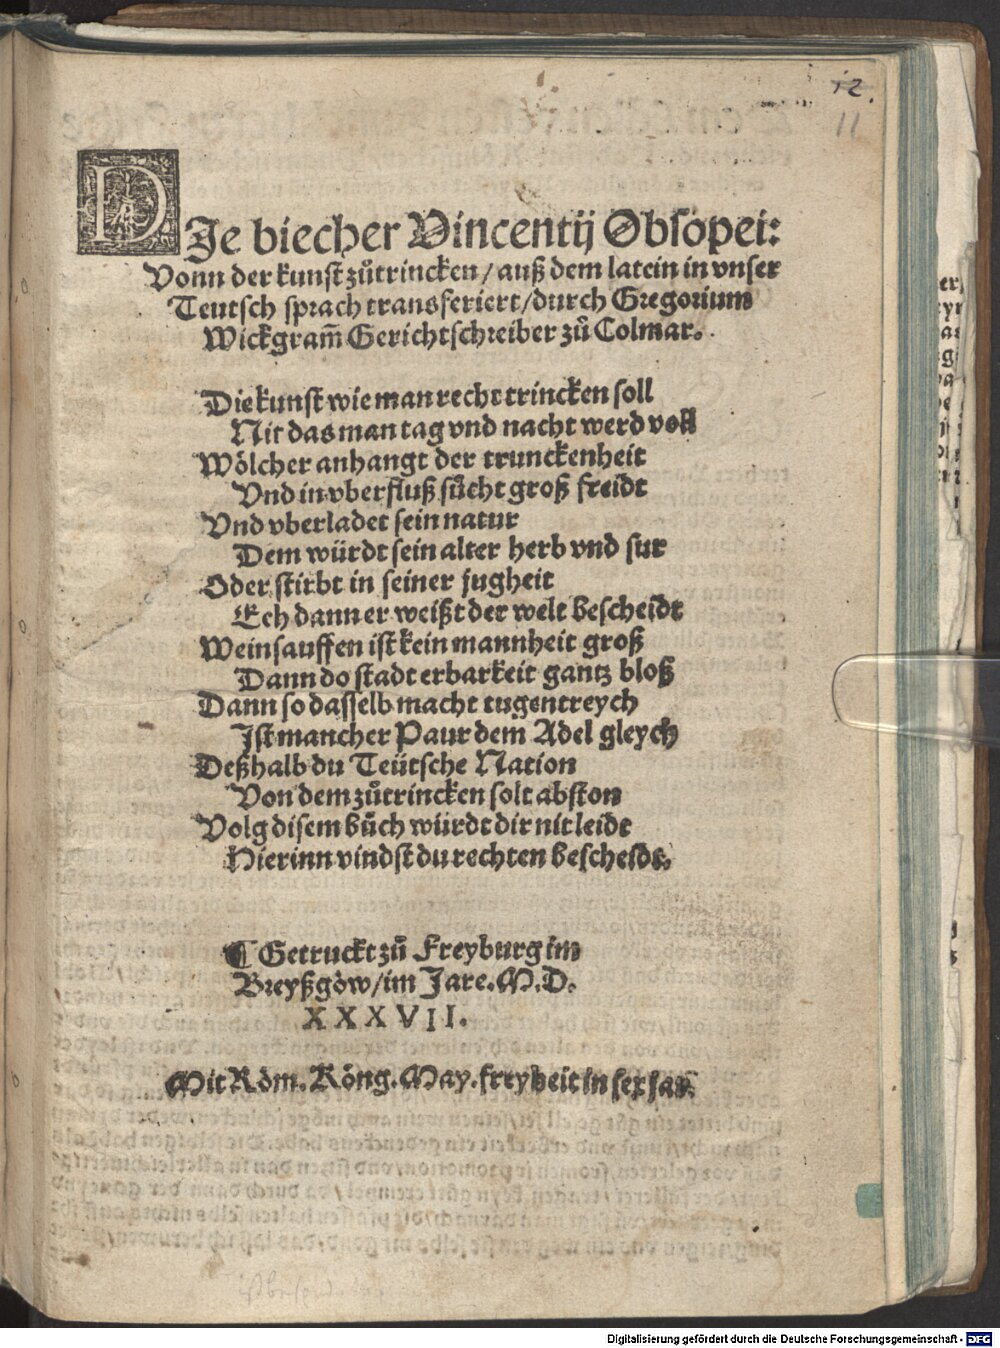 12.
11
DIe biecher Vincentij Obsopei:
Vonn der kunst zůtrincken / auß dem latein in vnser
Teutsch sprach transferiert / durch Gregorium
Wickgram̃ Gerichtschreiber zů Colmar.
Die kunst wie man recht trincken soll
Nit das man tag vnd nacht werd voll
Wölcher anhangt der trunckenheit
Vnd in vberfluß sůcht groß freidt
Vnd vberladet sein natur
Dem würdt sein alter herb vnd sur
Oder stirbt in seiner jugheit
Eeh dann er weißt der welt bescheidt
Weinsauffen ist kein mannheit groß
Dann do stadt erbarkeit gantz bloß
Dann so dasselb macht tugentreych
Ist mancher Paur dem Adel gleych
Deßhalb du Teütsche Nation
Von dem zůtrincken solt abston
Volg disem bůch würdt dir nit leidt
Hierinn vindst du rechten bescheidt.
¶ Getruckt zů Freyburg im
Breyßgöw / im Jare. M. D.
XXXVII.
Mit Röm. Köng. May. freyheit in sex jar.
Digitalisierung gefördert durch die Deutsche Forschungsgemeinschaft - DFG